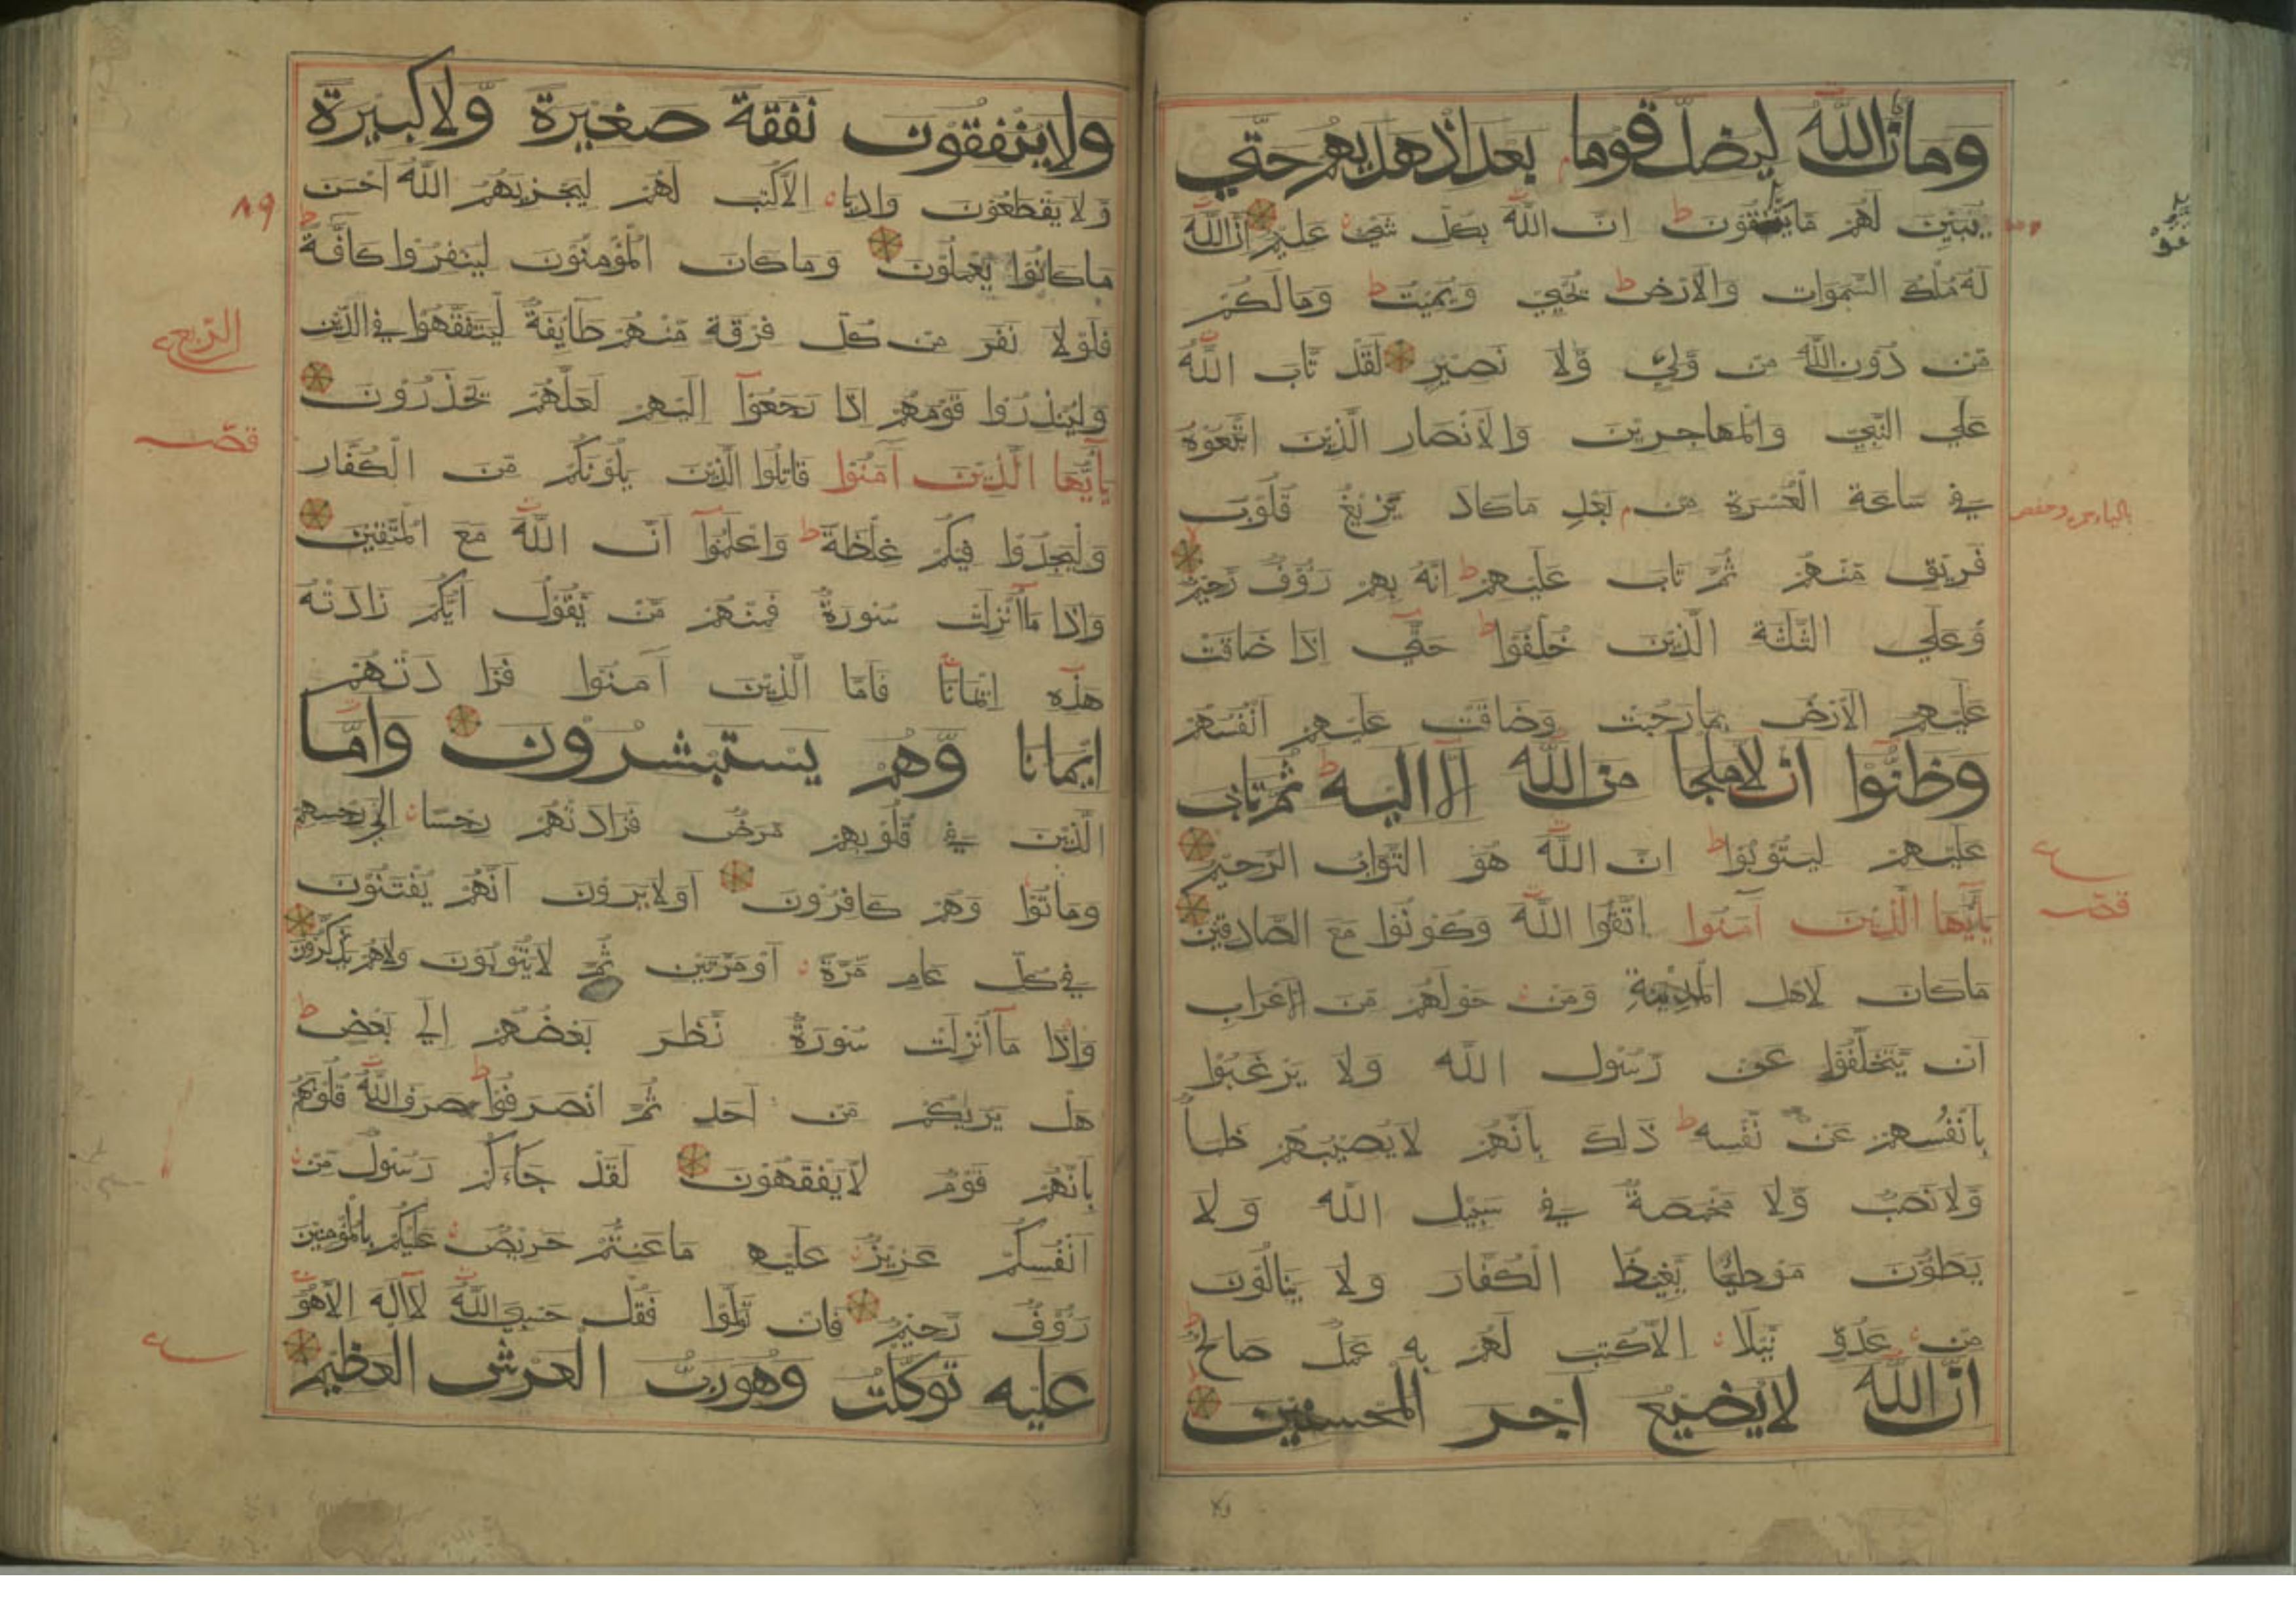 وما كان الله ليضل قوما بعد اذ هديهم حتي
يبين لهم ما يتقون ط ان الله بكل شيء عليم ان الله
له ملك السموات والارض ط يحيي ويميت ط وما لكم
من دون الله من ولي ولا نصير لقد تاب الله
علي النبي والمهاجرين والانصار الذين اتبعوه
في ساعة العسرة من بعد ما كاد يزيغ قلوب
فريق منهم ثم تاب عليهم ط انه بهم رؤف رحيم
وعلي الثلثة الذين خلفوا ط حتي اذا ضاقت
عليهم الارض بما رحبت وضاقت عليهم انفسهم
وظنوا ان لا ملجا من الله الا اليه ط ثم تاب
عليهم ليتوبوا ط ان الله هو التواب الرحيم
ياايها الذين آمنوا اتقوا الله وكونوا مع الصادقين
ما كان لاهل المدينة ومن حولهم من الاعراب
ان يتخلفوا عن رسول الله ولا يرغبوا
بانفسهم عن نفسه ط ذلك بانهم لا يصيبهم ظمأ
ولا نصب ولا مخمصة في سبيل الله ولا
يطؤن موطئا يغيظ الكفار ولا ينالون
من عدو نيلا الا كتب لهم به عمل صالح ط
ان الله لا يضيع اجر المحسنين
ع
قصـ
ولا ينفقون نفقة صغيرة ولا كبيرة
ولا يقطعون واديا الا كتب لهم ليجزيهم الله احسن
ما كانوا يعملون وما كان المؤمنون لينفروا كافة ط
فلولا نفر من كل فرقة منهم طايفة ليتفقهوا في الدين
ولينذروا قومهم اذا رجعوا اليهم لعلهم يحذرون
ياايها الذين آمنوا قاتلوا الذين يلونكم من الكفار
وليجدوا فيكم غلظة ط واعلموا ان الله مع المتقين
واذا ما انزلت سورة فمنهم من يقول ايكم زادته
هذه ايمانا فاما الذين آمنوا فزادتهم
ايمانا وهم يستبشرون واما
الذين في قلوبهم مرض فزادتهم رجسا الي رجسهم
وماتوا وهم كافرون اولا يرون انهم يفتنون
في كل عام مرة او مرتين ثم لا يتوبون ولا هم يذكرون
واذا ما انزلت سورة نظر بعضهم الي بعض ط
هل يريكم من احد ثم انصرفوا ط صرف الله قلوبهم
بانهم قوم لا يفقهون لقد جاءكم رسول من
انفسكم عزيز عليه ما عنتم حريص عليكم بالمؤمنين
رؤف رحيم فان تولوا فقل حسبي الله لا اله الا هو
عليه توكلت وهو رب العرش العظيم
٨٩
الربع
قصـ
ع